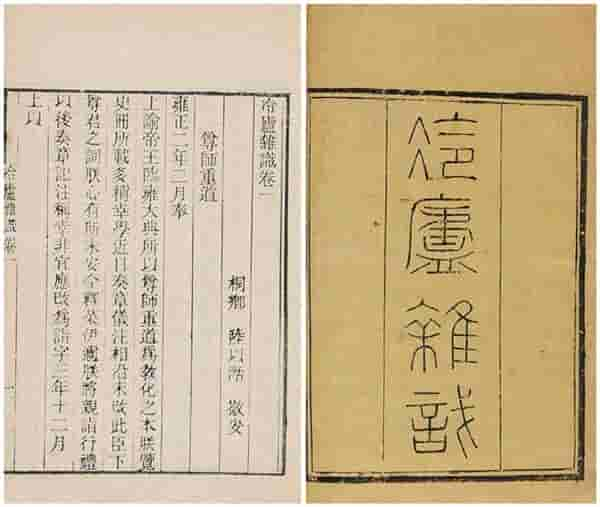 冷廬雜識
冷廬雜識卷一
桐鄉 陸以湉 敬安
尊師重道
雍正二年二月奉
上諭帝王臨雍大典所以尊師重道爲敎化之本朕覽
史冊所載多稱幸學近日奏章儀注相沿未改此臣下
尊君之詞朕心有所未安今釋菜伊邇朕將親詣行禮
以後奏章記注稱幸非宜應改爲詣字三年十二月
上以
冷廬雜識卷一 一